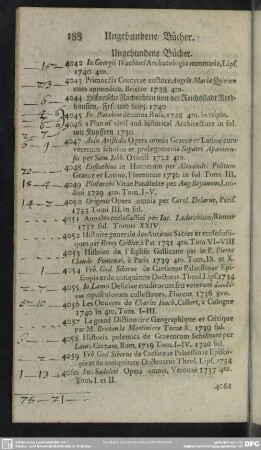 188 Ungebundene Bücher.
Ungebundene Bücher.
4042 Io. Georgii Wachteri Archaeologia nummaria, Lips.
1740 4to.
4043 Primordia Corcyrae auctore Angelo Maria Quirino
cum appendice, Brixiae 1738 4to.
4044 Historische Nachrichten von der Reichsstadt Nord-
hausen, Frf. und Leipz. 1740
4045 Fr. Parabini de
4046 a Plan of civil and historical Architecture in fol.
mit Kupffern 1730
4047 Aelii Aristidis Opera omnia Graece et Latine cum
veterum scholiis et prolegomenis Sopatri Apamaeen-
sis per Sam. Iebb. Oxonii 1722 4to.
4048 Eustathius in Homerum per Alexandr. Politum
Graece et Latine, Florentiae 1730 in fol. Tomi III.
4049 Plutarchi Vitae Parallelae per Aug. Bryanum, Lon-
dini 1729 4to. Tom. I-V.
4050 Origenis Opera omnia per Carol. Delarue, Paris.
1733 Tomi III. in fol.
4051 Annales ecclesiastici per Iac. Laderchium, Romae
1737 fol. Tomus XXIV
4052 Histoire generale des Auteurs Sacres et ecclesiasti-
ques par Remy Cellier à Par. 1731 4to. Tom. VI-VIII
4053 Histoire de l'Eglise Gallicane par le P. Pierre
Claude Fontenai, à Paris 1739 4to. Tom. IX et X
4054 Vrb. God. Siberus de Caesareae Palaestinae Epis-
copis et de antiquitate Doctorat. Theol. Lips. 1734
4055 Io. Lamii Deliciae eruditorum seu veterum
opusculorum collectanea, Florent. 1736 8vo.
4056 Les Oeuvres de Charles Iaach. Colbert, à Cologne
1740 in 4to. Tom. I-III.
4057 Le grand Dictionaire Geographique et Critique
par M. Bruzen la Martiniere Tome X. 1739 fol.
4058 Historia polemica de Graecorum Schismate per
Laur. Cozzam, Rom. 1719 Tom. I-IV. 1720 fol.
4059 Vrb. God. Siberus de Caesareae Palaestinae Episco-
pis et de antiquitate Doctoratus Theol. Lips. 1734
4060 Iac. Sadoleti Opera omnia, Veronae 1737 4to.
Tom. I. et II.
4061